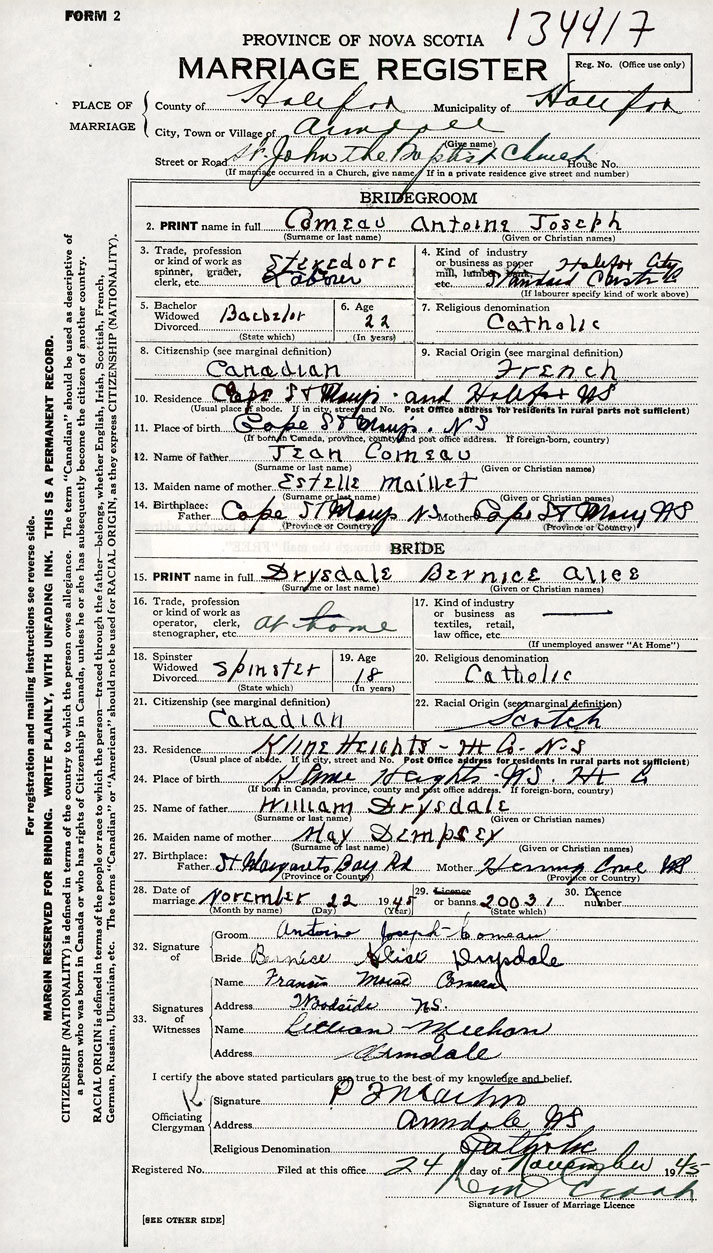 FORM 2
134417
PROVINCE OF NOVA SCOTIA
MARRIAGE REGISTER
Reg. No. (Office use only)
PLACE OF MARRIAGE
County of Halifax Municipality of Halifax
City, Town or Village of Armdale
(Give name)
Street or Road St. John the Baptist Church House No.
(If marriage occurred in a Church, give name) (If in a private residence give street and number)
BRIDEGROOM
2. PRINT name in full Comeau Antoine Joseph
(Surname or last name) (Given or Christian names)
3. Trade, profession or kind of work as spinner, grader, clerk, etc. Stevedore Labour
4. Kind of industry or business as paper mill, lumber, bank, etc. Halifax City Standard Constr Co
(If labourer specify kind of work above)
5. Bachelor Widowed Divorced Bachelor
(State which)
6. Age 22
(In years)
7. Religious denomination Catholic
8. Citizenship (see marginal definition) Canadian
9. Racial Origin (see marginal definition) French
10. Residence Cape St Marys. and Halifax NS
(Usual place of abode. If in city, street and No. Post Office address for residents in rural parts not sufficient)
11. Place of birth Cape St Marys. N.S
(If born in Canada, province, county and post office address. If foreign-born, country)
12. Name of father Jean Comeau
(Surname or last name) (Given or Christian names)
13. Maiden name of mother Estelle Maillet
(Surname or last name) (Given or Christian names)
14. Birthplace: Father Cape St Marys NS Mother Cape St Mary NS
(Province or Country) (Province or Country)
BRIDE
15. PRINT name in full Drysdale Bernice Alice
(Surname or last name) (Given or Christian names)
16. Trade, profession or kind of work as operator, clerk, stenographer, etc. at home
17. Kind of industry or business as textiles, retail, law office, etc.
(If unemployed answer "At Home")
18. Spinster Widowed Divorced Spinster
(State which)
19. Age 18
(In years)
20. Religious denomination Catholic
21. Citizenship (see marginal definition) Canadian
22. Racial Origin (see marginal definition) Scotch
23. Residence Kline Heights - Hx Co. N-S
(Usual place of abode. If in city, street and No. Post Office address for residents in rural parts not sufficient)
24. Place of birth Kline Heights - NS. Hx C
(If born in Canada, province, county and post office address. If foreign-born, country)
25. Name of father William Drysdale
(Surname or last name) (Given or Christian names)
26. Maiden name of mother May Dempsey
(Surname or last name) (Given or Christian names)
27. Birthplace: Father St Margarets Bay Rd Mother Herring Cove NS
(Province or Country) (Province or Country)
28. Date of marriage November 22 1945
(Month by name) (Day) (Year)
29. Licence or banns 20031
(State which)
30. Licence number
32. Signature of
Groom Antoine Joseph Comeau
Bride Bernice Alice Drysdale
33. Signatures of Witnesses
Name Francis Moise Comeau
Address Woodside NS.
Name Lillian Meehan
Address Armdale
I certify the above stated particulars are true to the best of my knowledge and belief.
Officiating Clergyman
Signature
Address Armdale NS
Religious Denomination Catholic
Registered No. Filed at this office 24 day of November 1945
Signature of Issuer of Marriage Licence
[SEE OTHER SIDE]
For registration and mailing instructions see reverse side.
MARGIN RESERVED FOR BINDING. WRITE PLAINLY, WITH UNFADING INK. THIS IS A PERMANENT RECORD.
CITIZENSHIP (NATIONALITY) is defined in terms of the country to which the person owes allegiance. The term "Canadian" should be used as descriptive of
a person who was born in Canada or who has rights of Citizenship in Canada, unless he or she has subsequently become the citizen of another country.
RACIAL ORIGIN is defined in terms of the people or race to which the person—traced through the father—belongs, whether English, Irish, Scottish, French,
German, Russian, Ukrainian, etc. The terms "Canadian" or "American" should not be used for RACIAL ORIGIN, as they express CITIZENSHIP (NATIONALITY).